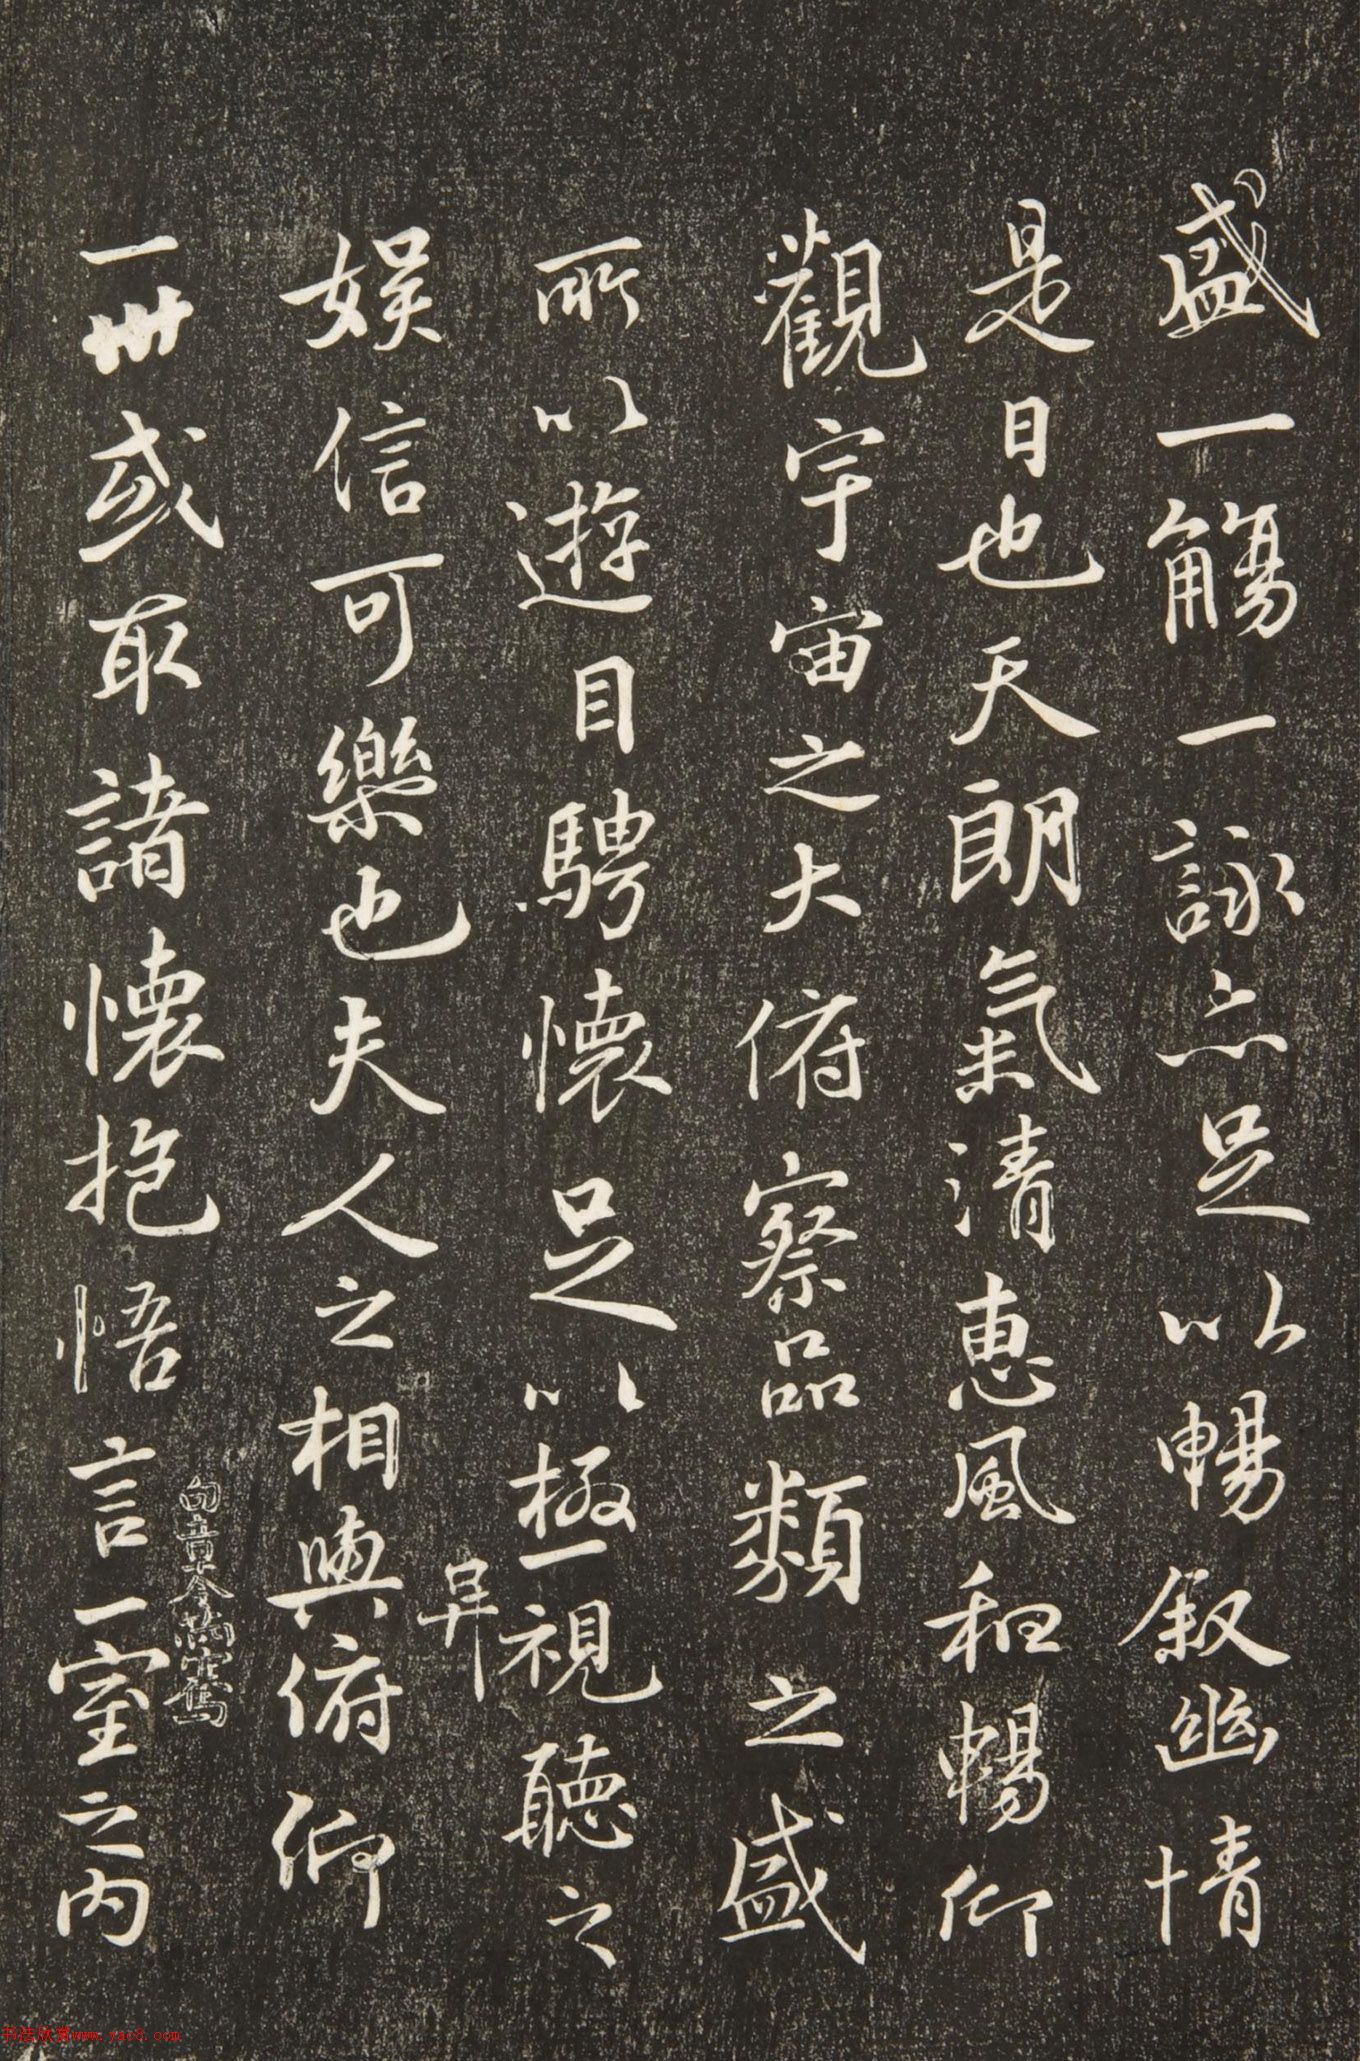 盛一觴一詠亦足以暢叙幽情
是日也天朗氣清惠風和暢仰
觀宇宙之大俯察品類之盛
所以遊目騁懷足以極視聽之
娛信可樂也夫人之相與俯仰
一世或取諸懷抱悟言一室之内
书法欣赏www.yac8.com